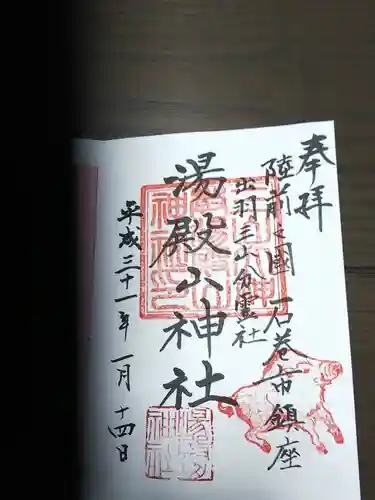 奉拝
陸前之國 石巻市鎮座
出羽三山分霊社
湯殿山神社
平成三十一年一月十四日
湯殿山
神社